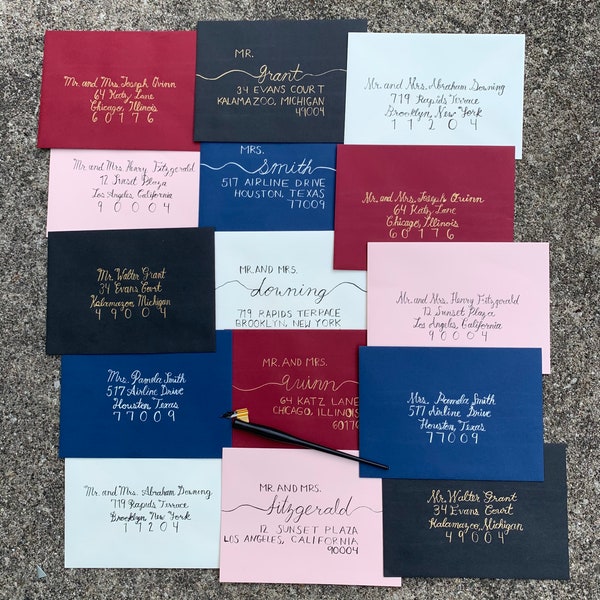 Mr. and Mrs. Joseph Quinn
64 Katz Lane
Chicago, Illinois
60176
MR.
grant
34 EVANS COURT
KALAMAZOO, MICHIGAN
49004
Mr. and Mrs. Abraham Downing
719 Rapids Terrace
Brooklyn, New York
11204
Mr. and Mrs. Henry Fitzgerald
12 Sunset Plaza
Los Angeles, California
90004
MRS.
Smith
517 AIRLINE DRIVE
HOUSTON, TEXAS
77009
Mr. and Mrs. Joseph Quinn
64 Katz Lane
Chicago, Illinois
60176
Mr. Walter Grant
34 Evans Court
Kalamazoo, Michigan
49004
MR. AND MRS.
downing
719 RAPIDS TERRACE
BROOKLYN, NEW YORK
Mr. and Mrs. Henry Fitzgerald
12 Sunset Plaza
Los Angeles, California
90004
Mrs. Pamela Smith
517 Airline Drive
Houston, Texas
77009
MR. AND MRS.
quinn
64 KATZ LANE
CHICAGO, ILLINOIS
60176
Mrs. Pamela Smith
577 Airline Drive
Houston, Texas
77009
Mr. and Mrs. Abraham Downing
719 Rapids Terrace
Brooklyn, New York
11204
MR. AND MRS.
fitzgerald
12 SUNSET PLAZA
LOS ANGELES, CALIFORNIA
90004
Mr. Walter Grant
34 Evans Court
Kalamazoo, Michigan
49004